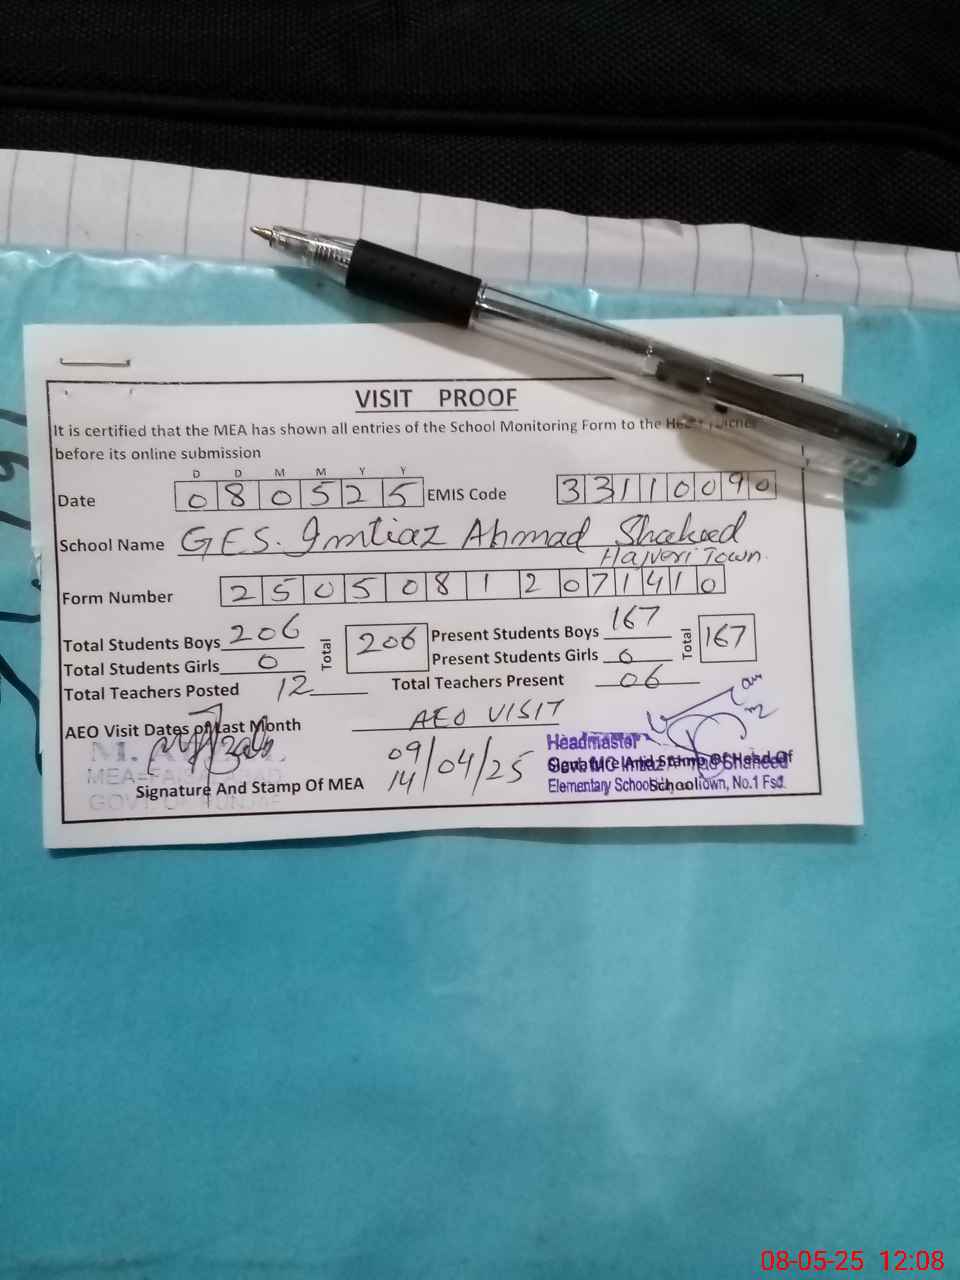 VISIT PROOF
It is certified that the MEA has shown all entries of the School Monitoring Form to the
before its online submission
D D M M Y Y
Date 080525 EMIS Code 33110090
School Name GES. Imtiaz Ahmad Shaheed
Hajveri Town.
Form Number 25050812071410
Total Students Boys 206 Total 206 Present Students Boys 167 Total 167
Total Students Girls 0 Present Students Girls 0
Total Teachers Posted 12 Total Teachers Present 06
AEO Visit Dates of Last Month AEO VISIT
09
14/04/25
Headmaster
Signature And Stamp Of Head Of
School
Elementary School Town, No.1 Fsd.
M.
MEA
Signature And Stamp Of MEA
08-05-25 12:08